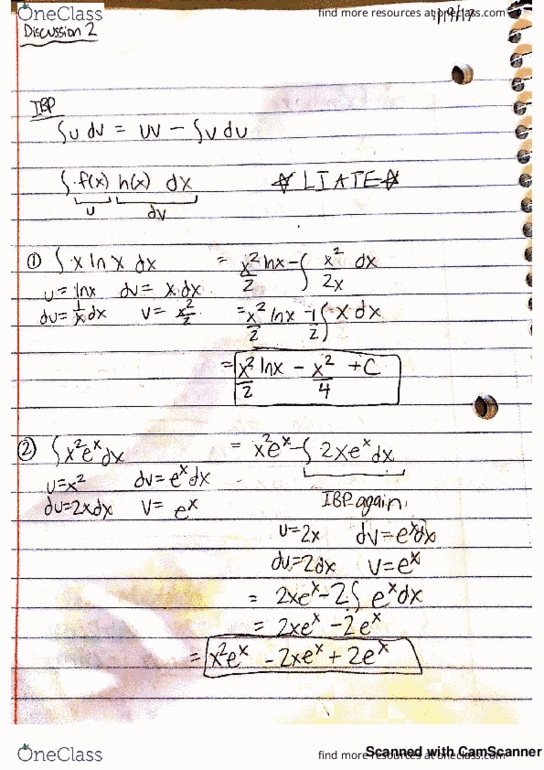 OneClass
find more resources at oneclass.com
1/19/17
Discussion 2
IBP
∫u dv = uv − ∫v du
∫ f(x) h(x) dx ☆ LIATE ☆
u dv
① ∫ x ln x dx = x²/2 lnx − ∫ x²/2x dx
u = lnx dv = x dx
du = 1/x dx v = x²/2 = x²/2 ln x − 1/2 ∫ x dx
= x²/2 lnx − x²/4 + C
② ∫x²eˣdx = x²eˣ − ∫ 2xeˣdx
u=x² dv = eˣdx
du=2xdx v= eˣ IBP again
u=2x dv=eˣdx
du=2dx v=eˣ
= 2xeˣ − 2∫ eˣdx
= 2xeˣ − 2eˣ
= x²eˣ − 2xeˣ + 2eˣ
OneClass
find more resources at oneclass.com
Scanned with CamScanner